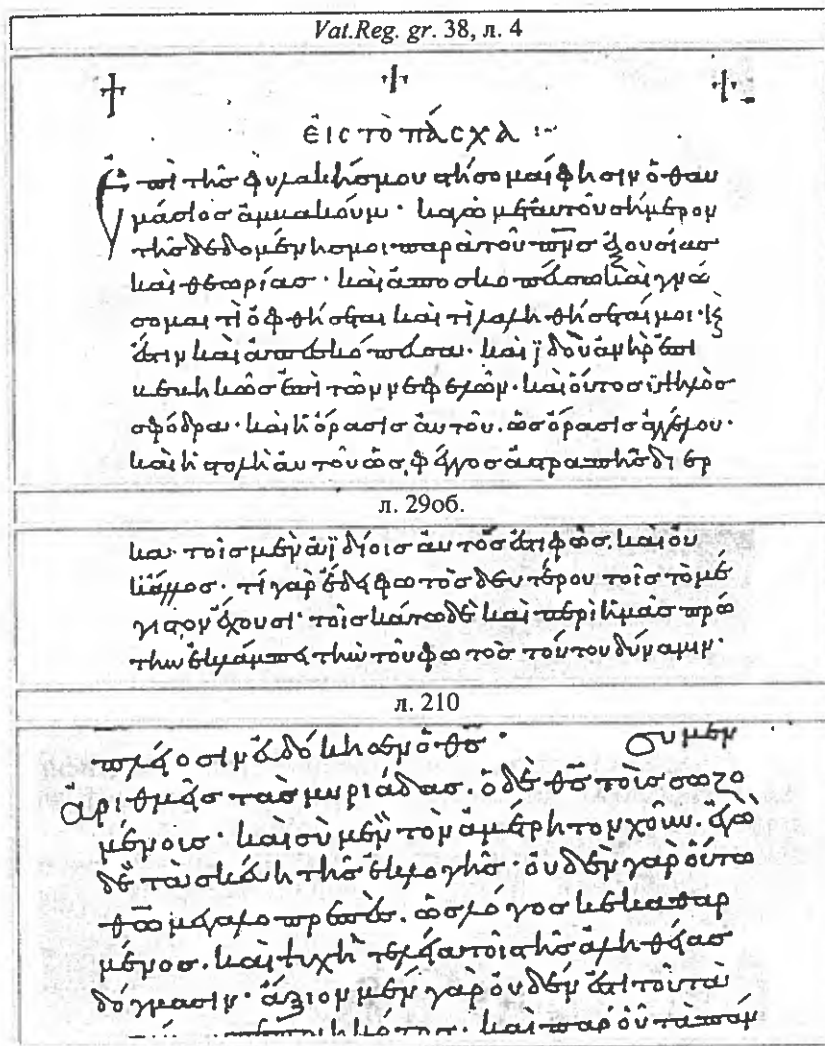 Vat.Reg. gr. 38, л. 4
ΕἰC ΤὸΠΆCΧΑ :·
Ἐπὶ τῆς φυλακῆς μου στήσομαί φησιν ὁ θαυ
μάσιος ἀμβακούμ · κἀγὼ μετ αὐτοῦ σήμερον
τῆς δεδομένης μοι παρὰ τοῦ πνς ἐξουσίας
καὶ θεωρίας · καὶ ἀποσκοπεύσω καὶ γνώ
σομαι τί ὀφθήσεται καὶ τί λαληθήσεταί μοι · κ
ἔστην καὶ ἀπεσκόπευσα · καὶ ἰδοὺ ἀνὴρ ἐπι
βεβηκὼς ἐπὶ τῶν νεφελῶν · καὶ οὗτος ὑψηλὸς
σφόδρα · καὶ ἡ ὅρασις αὐτοῦ . ὡς ὅρασις ἀγγέλου ·
καὶ ἡ στολὴ αὐτοῦ ὡς φέγγος ἀστραπῆς διερ
л. 29об.
κα · τοῖς μὲν ἀϊδίοις αὐτὸς ἐστὶ φῶς . καὶ οὐ
κ ἄλλος · τί γὰρ ἔδει φωτὸς δευτέρου τοῖς τὸ μέ
γιστον ἔχουσι · τοῖς κάτω δὲ καὶ περὶ ἡμᾶς πρώ
την ἐλλάμπει τὴν τοῦ φωτὸς τούτου δύναμιν ·
л. 210
πλείοσιν εὐδόκησεν ὁ θς · σὺ μὲν
ἀριθμεῖς τὰς μυριάδας . ὁ δὲ θς τοῖς σωζο
μένοις · καὶ σὺ μὲν τὸν ἀμέτρητον χοῦν . ἐγὼ
δὲ τὰ σκεύη τῆς ἐκλογῆς · οὐδὲν γὰρ οὕτω
θω μεγαλοπρεπὲς . ὡς λόγος κεκαθαρ
μένος . καὶ ψυχὴ τελεία τοῖς τῆς ἀληθείας
δόγμασιν · ἄξιον μὲν γὰρ οὐδέν ἐστι τοῦ τὰ
καὶ παρ οὗ τὰ πάν